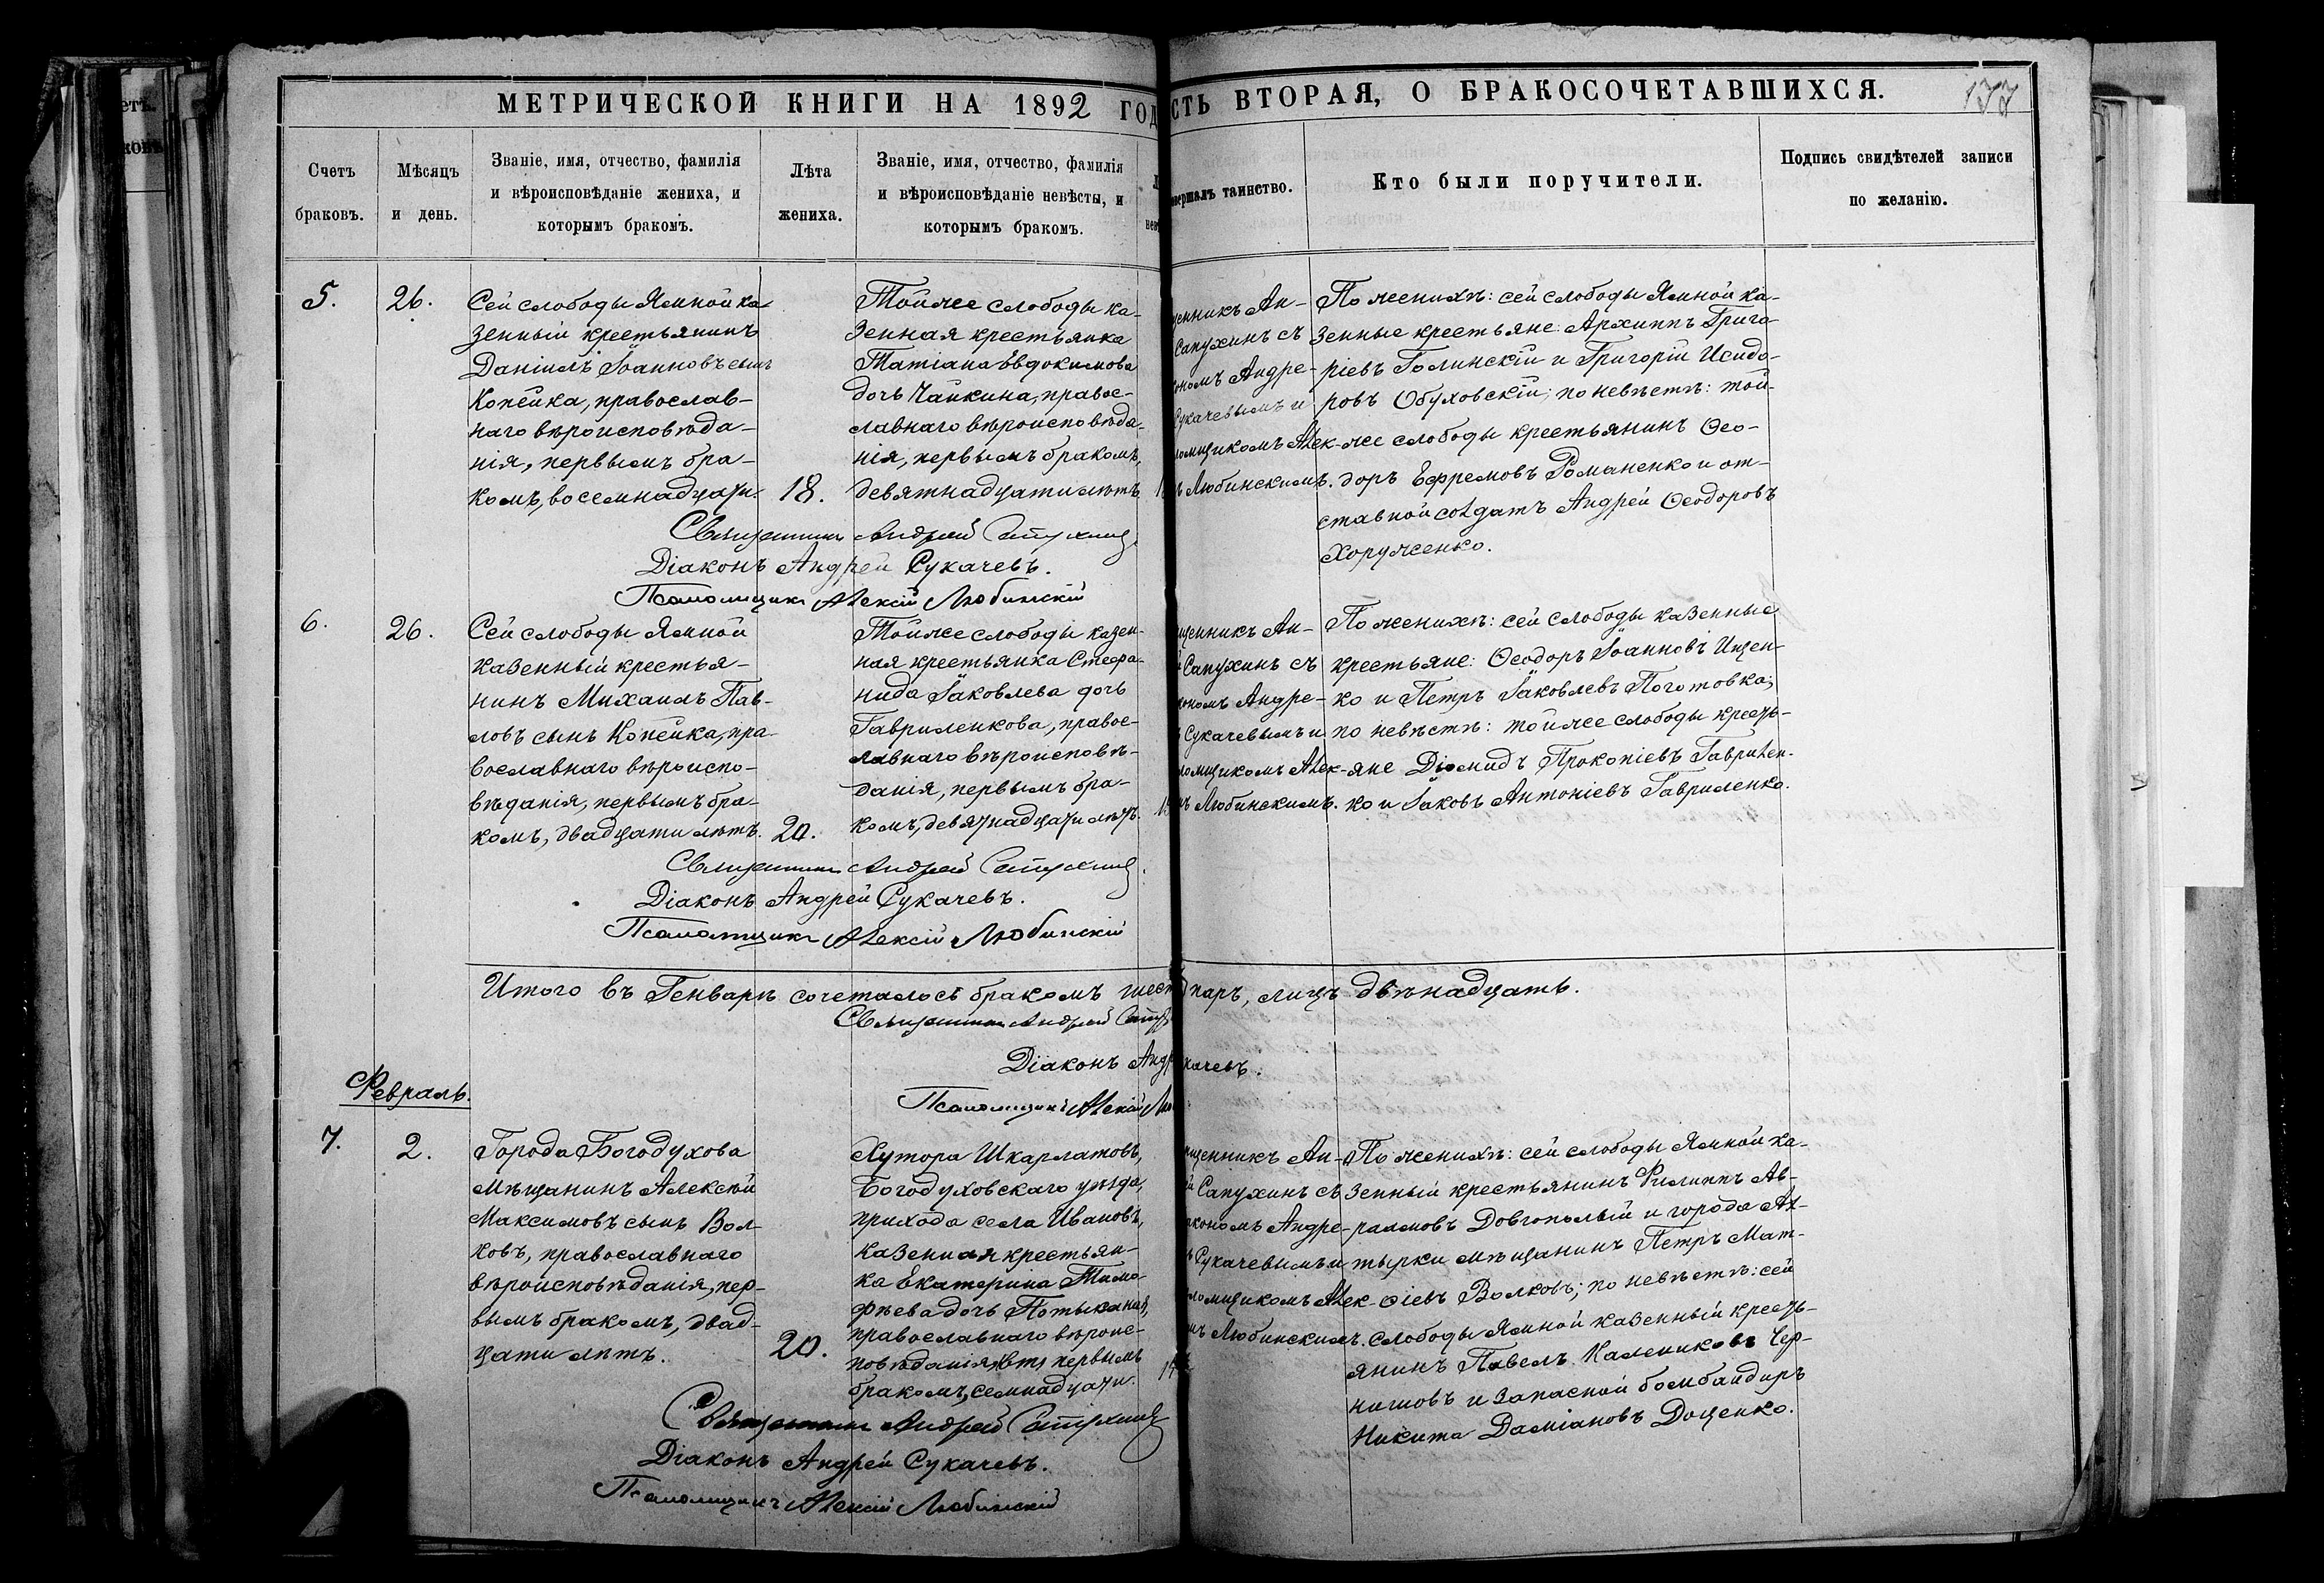 МЕТРИЧЕСКОЙ КНИГИ НА 1892 ГОД
СТЬ ВТОРАЯ, О БРАКОСОЧЕТАВШИХСЯ.
177
Счетъ
браковъ.
Мѣсяцъ
и день.
Званіе, имя, отчество, фамилія
и вѣроисповѣданіе жениха, и
которымъ бракомъ.
Лѣта
жениха.
Званіе, имя, отчество, фамилія
и вѣроисповѣданіе невѣсты, и
которымъ бракомъ.
овершалъ таинство.
Кто были поручители.
Подпись свидѣтелей записи
по желанію.
5.
26.
Сей слободы Ямной ка-
зенный крестьянинъ
Даніилъ Іоанновъ сынъ
Копейка, православ-
наго вѣроисповѣда-
нія, первымъ бра-
комъ, восемнадцати
18.
Тойже слободы ка-
зенная крестьянка
Татіана Евдокимова
дочь Чайкина, правос-
лавнаго вѣроисповѣда-
нія, первымъ бракомъ,
девятнадцати лѣтъ
щенникъ Ан-
Сапухинъ съ
кономъ Андре-
Сукачевымъ и
ломщикомъ Алек-
ъ Любинскимъ.
По женихѣ: сей слободы Ямной ка-
зенные крестьяне: Архиппъ Григо-
ріевъ Голинскій и Григорій Исидо-
ровъ Обуховскій; по невѣстѣ: той-
же слободы крестьянинъ Ѳео-
доръ Ефремовъ Романенко и от-
ставной солдатъ Андрей Ѳеодоровъ
Хоруженко.
Священникъ Андрей Сапухинъ
Діаконъ Андрей Сукачевъ.
Псаломщикъ Алексій Любинскій
6.
26.
Сей слободы Ямной
казенный крестья-
нинъ Михаилъ Пав-
ловъ сынъ Копейка, пра-
вославнаго вѣроиспо-
вѣданія, первымъ бра-
комъ, двадцати лѣтъ.
20.
Тойже слободы казен-
ная крестьянка Стефа-
нида Іаковлева дочь
Гавриленкова, правос-
лавнаго вѣроисповѣ-
данія, первымъ бра-
комъ, девятнадцати лѣтъ.
щенникъ Ан-
Сапухинъ съ
кономъ Андре-
Сукачевымъ и
ломщикомъ Алек-
ъ Любинскимъ.
По женихѣ: сей слободы казенные
крестьяне: Ѳеодоръ Іоанновъ Ищен-
ко и Петръ Іаковлевъ Поготовка;
по невѣстѣ: тойже слободы кресть-
яне Діомидъ Прокопіевъ Гаврилен-
ко и Іаковъ Антоніевъ Гавриленко.
Священникъ Андрей Сапухинъ
Діаконъ Андрей Сукачевъ.
Псаломщикъ Алексій Любинскій
Итого въ Генварѣ сочеталось бракомъ шест паръ, лицъ двѣнадцать.
Священникъ Андрей Сапух
Діаконъ Анд качевъ.
Псаломщикъ Алексій Лю
Февраль.
7.
2.
Города Богодухова
мѣщанинъ Алексѣй
Максимовъ сынъ Вол-
ковъ, православнаго
вѣроисповѣданія, пер-
вымъ бракомъ, двад-
цати лѣтъ.
20.
Хутора Шкарлатовъ,
Богодуховскаго уѣзда,
прихода села Ивановъ,
казенная крестьян-
ка Екатерина Тимо-
фѣева дочь
православнаго вѣроис-
повѣданія, первымъ
бракомъ, семнадцати
щенникъ Ан-
Сапухинъ съ
кономъ Андре-
Сукачевымъ и
ломщикомъ Алек-
ъ Любинскимъ.
По женихѣ: сей слободы Ямной ка-
зенный крестьянинъ Филиппъ Ав-
раамовъ Довгополый и города Ах-
тырки мѣщанинъ Петръ Мат-
ѳіевъ Волковъ; по невѣстѣ: сей
слободы Ямной казенный кресть-
янинъ Павелъ Калениковъ Чер-
нышовъ и запасной бомбандиръ
Никита Даміановъ Доценко.
Священникъ Андрей Сапухинъ
Діаконъ Андрей Сукачевъ.
Псаломщикъ Алексій Любинскій